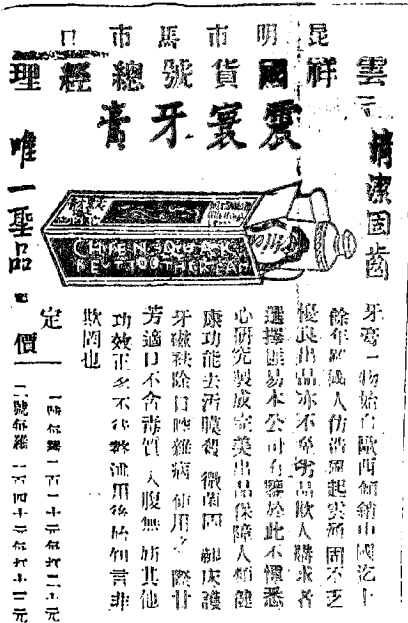 昆明市馬市口
雲祥國貨號總經理
震寰牙膏
精潔固齒
唯一聖品
牙膏一物始自歐西傾銷中國迄十
餘年國人仿造風起雲湧固不乏
優良出品亦不免劣品欺人購求者
選擇匪易本公司有鑒於此不憚悉
心研究製成完美出品保障人類健
康功能去污膜殺微菌固齦床護
牙磁袪除口腔雜病使用之際甘
芳適口不含毒質入腹無妨其他
功效正多不待贅述用後始知言非
欺罔也
定價
一號每羅一百一十元每打
二號每羅一百四十元每打十三元